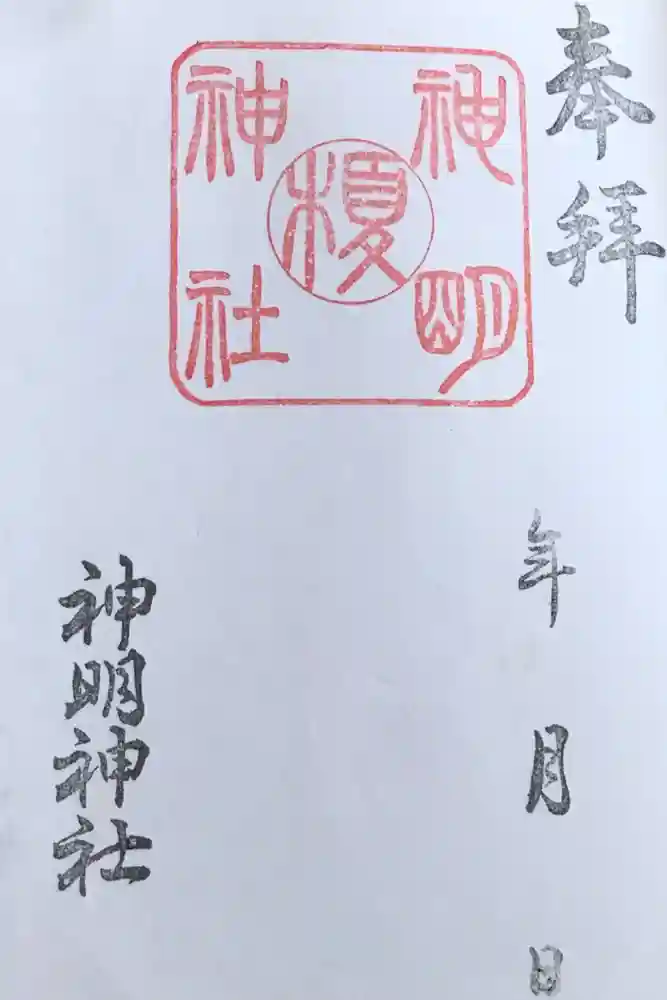 奉拝
神明
神社
榎
年 月 日
神明神社